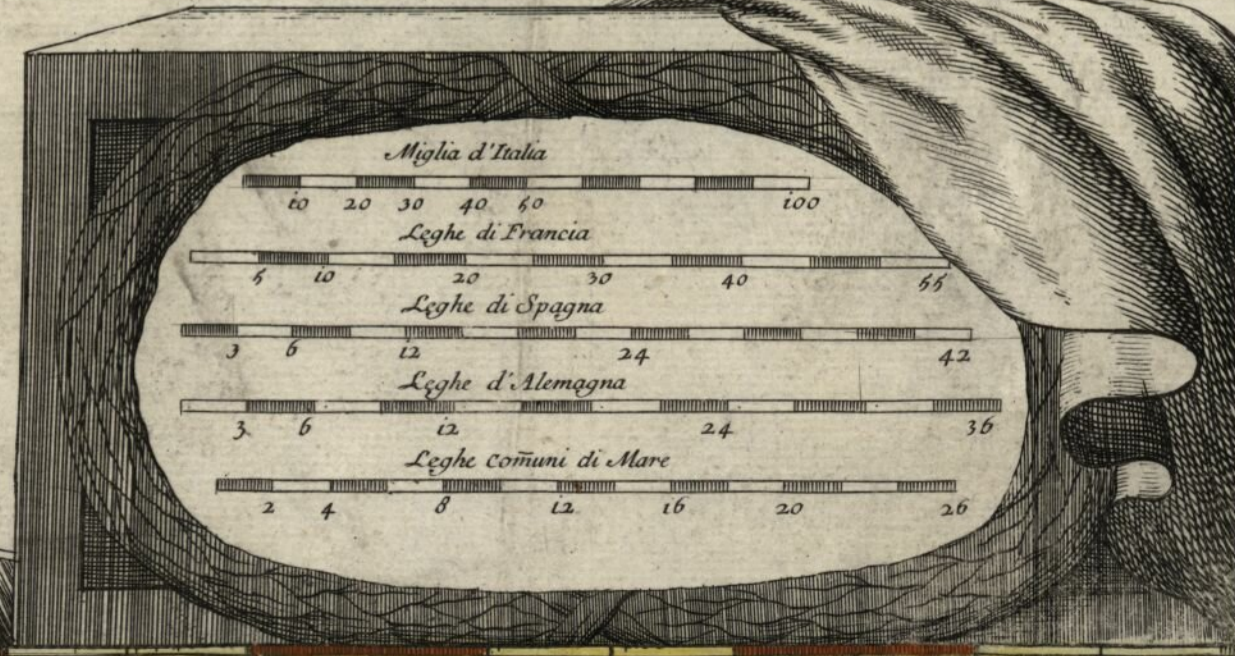 Miglia d'Italia
10 20 30 40 50 100
Leghe di Francia
5 10 20 30 40 55
Leghe di Spagna
3 6 12 24 42
Leghe d'Alemagna
3 6 12 24 36
Leghe com̃uni di Mare
2 4 8 12 16 20 26